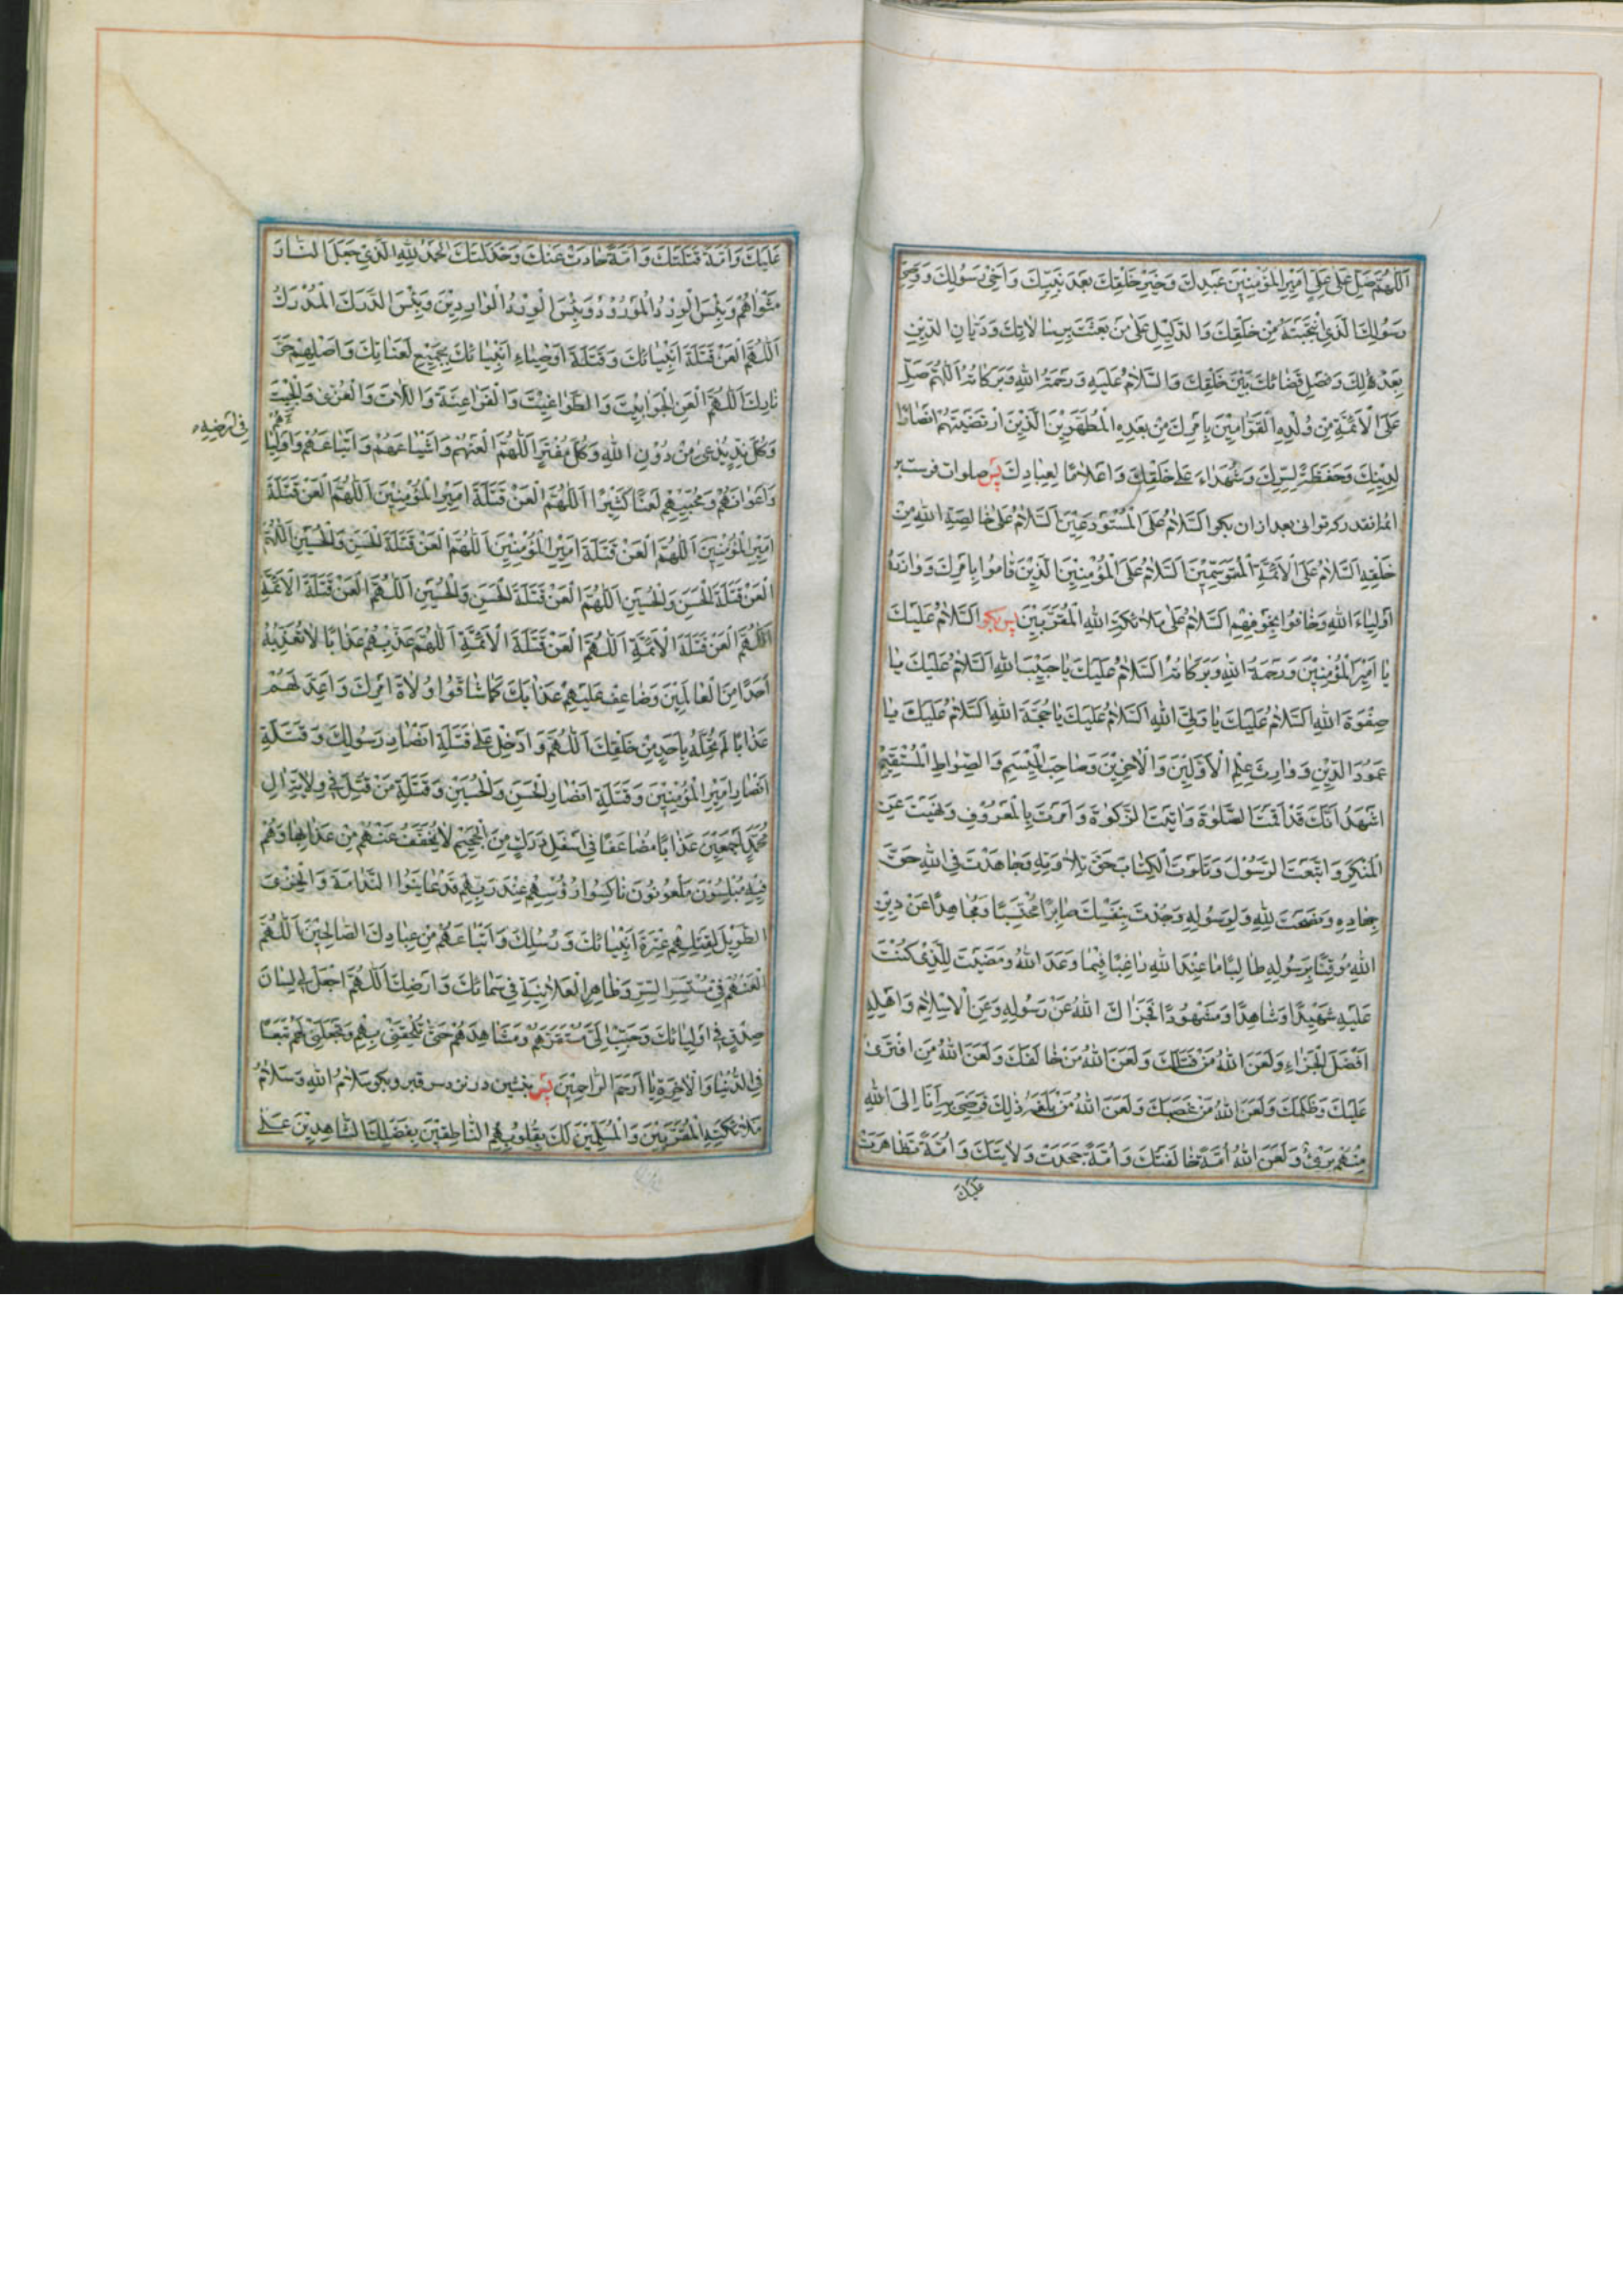 اَللّهُمَّ صَلِّ عَلى عَلِيٍّ اَمِيرِ الْمُؤْمِنِينَ عَبْدِكَ وَخَيْرِ خَلْقِكَ بَعْدَ نَبِيِّكَ وَاَخِي رَسُولِكَ وَوَصِيِّ
رَسُولِكَ الَّذِي انْتَجَبْتَهُ مِنْ خَلْقِكَ وَالدَّلِيلِ عَلى مَنْ بَعَثْتَ بِرِسالاتِكَ وَدَيّانِ الدّينِ
بِعَدْلِكَ وَفَصْلِ قَضائِكَ بَيْنَ خَلْقِكَ وَالسَّلامُ عَلَيْهِ وَرَحْمَةُ اللهِ وَبَرَكاتُهُ اَللّهُمَّ صَلِّ
عَلَى الْاَئِمَّةِ مِنْ وُلْدِهِ الْقَوّامِينَ بِاَمْرِكَ مِنْ بَعْدِهِ الْمُطَهَّرِينَ الَّذِينَ ارْتَضَيْتَهُمْ اَنْصارًا
لِدِينِكَ وَحَفَظَةً لِسِرِّكَ وَشُهَداءَ عَلى خَلْقِكَ وَاَعْلامًا لِعِبادِكَ پس صلوات فرست بر
ائمه انقدر كه توانى بعد ازان بكو اَلسَّلامُ عَلَى الْمُسْتَوْدَعِينَ اَلسَّلامُ عَلى خالِصَةِ اللهِ مِنْ
خَلْقِهِ اَلسَّلامُ عَلَى الْاَئِمَّةِ الْمُتَوَسِّمِينَ اَلسَّلامُ عَلَى الْمُؤْمِنِينَ الَّذِينَ قامُوا بِاَمْرِكَ وَوازَرُوا
اَوْلِياءَ اللهِ وَخافُوا بِخَوْفِهِمْ اَلسَّلامُ عَلى مَلائِكَةِ اللهِ الْمُقَرَّبِينَ پس بكو اَلسَّلامُ عَلَيْكَ
يا اَمِيرَ الْمُؤْمِنِينَ وَرَحْمَةُ اللهِ وَبَرَكاتُهُ اَلسَّلامُ عَلَيْكَ يا حَبِيبَ اللهِ اَلسَّلامُ عَلَيْكَ يا
صِفْوَةَ اللهِ اَلسَّلامُ عَلَيْكَ يا وَلِيَّ اللهِ اَلسَّلامُ عَلَيْكَ يا حُجَّةَ اللهِ اَلسَّلامُ عَلَيْكَ يا
عَمُودَ الدِّينِ وَوارِثَ عِلْمِ الْاَوَّلِينَ وَالْاخِرِينَ وَصاحِبَ الْمِيسَمِ وَالصِّراطِ الْمُسْتَقِيمِ
اَشْهَدُ اَنَّكَ قَدْ اَقَمْتَ الصَّلوةَ وَاتَيْتَ الزَّكوةَ وَاَمَرْتَ بِالْمَعْرُوفِ وَنَهَيْتَ عَنِ
الْمُنْكَرِ وَاتَّبَعْتَ الرَّسُولَ وَتَلَوْتَ الْكِتابَ حَقَّ تِلاوَتِهِ وَجاهَدْتَ فِي اللهِ حَقَّ
جِهادِهِ وَنَصَحْتَ لِلّهِ وَلِرَسُولِهِ وَجُدْتَ بِنَفْسِكَ صابِرًا مُحْتَسِبًا وَمُجاهِدًا عَنْ دِينِ
اللهِ مُوقِنًا بِرَسُولِهِ طالِبًا ما عِنْدَ اللهِ راغِبًا فِيما وَعَدَ اللهُ وَمَضَيْتَ لِلَّذِي كُنْتَ
عَلَيْهِ شَهِيدًا وَشاهِدًا وَمَشْهُودًا فَجَزاكَ اللهُ عَنْ رَسُولِهِ وَعَنِ الْاِسْلامِ وَاَهْلِهِ
اَفْضَلَ الْجَزاءِ وَلَعَنَ اللهُ مَنْ قَتَلَكَ وَلَعَنَ اللهُ مَنْ خالَفَكَ وَلَعَنَ اللهُ مَنِ افْتَرى
عَلَيْكَ وَظَلَمَكَ وَلَعَنَ اللهُ مَنْ غَصَبَكَ وَلَعَنَ اللهُ مَنْ بَلَغَهُ ذلِكَ فَرَضِيَ بِهِ اَنَا اِلَى اللهِ
مِنْهُمْ بَرِيءٌ وَلَعَنَ اللهُ اُمَّةً خالَفَتْكَ وَاُمَّةً جَحَدَتْ وَلايَتَكَ وَاُمَّةً تَظاهَرَتْ
عَلَيْكَ
عَلَيْكَ وَاُمَّةً قَتَلَتْكَ وَاُمَّةً حادَتْ عَنْكَ وَخَذَلَتْكَ اَلْحَمْدُ لِلّهِ الَّذِي جَعَلَ النّارَ
مَثْواهُمْ وَبِئْسَ الْوِرْدُ الْمَوْرُودُ وَبِئْسَ الْوِرْدُ الْوارِدِينَ وَبِئْسَ الدَّرَكُ الْمُدْرَكُ
اَللّهُمَّ الْعَنْ قَتَلَةَ اَنْبِيائِكَ وَقَتَلَةَ اَوْصِياءِ اَنْبِيائِكَ بِجَمِيعِ لَعَناتِكَ وَاَصْلِهِمْ حَرَّ
نارِكَ اَللّهُمَّ الْعَنِ الْجَوابِيتَ وَالطَّواغِيتَ وَالْفَراعِنَةَ وَاللّاتَ وَالْعُزّى وَالْجِبْتَ
وَكُلَّ نِدٍّ يُدْعى مِنْ دُونِ اللهِ وَكُلَّ مُفْتَرٍ اَللّهُمَّ الْعَنْهُمْ وَاَشْياعَهُمْ وَاَتْباعَهُمْ وَاَوْلِيا
ءَهُمْ
وَاَعْوانَهُمْ وَمُحِبِّيهِمْ لَعْنًا كَثِيرًا اَللّهُمَّ الْعَنْ قَتَلَةَ اَمِيرِ الْمُؤْمِنِينَ اَللّهُمَّ الْعَنْ قَتَلَةَ
اَمِيرِ الْمُؤْمِنِينَ اَللّهُمَّ الْعَنْ قَتَلَةَ اَمِيرِ الْمُؤْمِنِينَ اَللّهُمَّ الْعَنْ قَتَلَةَ الْحَسَنِ وَالْحُسَيْنِ اَللّهُمَّ
الْعَنْ قَتَلَةَ الْحَسَنِ وَالْحُسَيْنِ اَللّهُمَّ الْعَنْ قَتَلَةَ الْحَسَنِ وَالْحُسَيْنِ اَللّهُمَّ الْعَنْ قَتَلَةَ الْاَئِمَّةِ
اَللّهُمَّ الْعَنْ قَتَلَةَ الْاَئِمَّةِ اَللّهُمَّ الْعَنْ قَتَلَةَ الْاَئِمَّةِ اَللّهُمَّ عَذِّبْهُمْ عَذابًا لا تُعَذِّبُهُ
اَحَدًا مِنَ الْعالَمِينَ وَضاعِفْ عَلَيْهِمْ عَذابَكَ كَما شاقُّوا وُلاةَ اَمْرِكَ وَاَعِدَّ لَهُمْ
عَذابًا لَمْ تُحِلَّهُ بِاَحَدٍ مِنْ خَلْقِكَ اَللّهُمَّ وَاَدْخِلْ عَلى قَتَلَةِ اَنْصارِ رَسُولِكَ وَقَتَلَةِ
اَنْصارِ اَمِيرِ الْمُؤْمِنِينَ وَقَتَلَةِ اَنْصارِ الْحَسَنِ وَالْحُسَيْنِ وَقَتَلَةِ مَنْ قُتِلَ فِي وِلايَةِ الِ
مُحَمَّدٍ اَجْمَعِينَ عَذابًا مُضاعَفًا فِي اَسْفَلِ دَرَكٍ مِنَ الْجَحِيمِ لا يُخَفَّفُ عَنْهُمْ مِنْ عَذابِها وَهُمْ
فِيهِ مُبْلِسُونَ مَلْعُونُونَ ناكِسُوا رُؤُسِهِمْ عِنْدَ رَبِّهِمْ قَدْ عايَنُوا النَّدامَةَ وَالْخِزْيَ
الطَّوِيلَ لِقَتْلِهِمْ عِتْرَةَ اَنْبِيائِكَ وَرُسُلِكَ وَاَتْباعَهُمْ مِنْ عِبادِكَ الصّالِحِينَ اَللّهُمَّ
الْعَنْهُمْ فِي مُسْتَسِرِّ السِّرِّ وَظاهِرِ الْعَلانِيَةِ فِي سَمائِكَ وَاَرْضِكَ اَللّهُمَّ اجْعَلْ لِي لِسانَ
صِدْقٍ فِي اَوْلِيائِكَ وَحَبِّبْ اِلَيَّ مُسْتَقَرَّهُمْ وَمَشاهِدَهُمْ حَتّى تُلْحِقَنِي بِهِمْ وَتَجْعَلَنِي لَهُمْ تَبَعًا
فِي الدُّنْيا وَالْاخِرَةِ يا اَرْحَمَ الرّاحِمِينَ پس بنشين در نزد سر قبر و بكو سَلامُ اللهِ وَسَلامُ
مَلائِكَتِهِ الْمُقَرَّبِينَ وَالْمُسَلِّمِينَ لَكَ بِقُلُوبِهِمْ النّاطِقِينَ بِفَضْلِكَ الشّاهِدِينَ عَلى